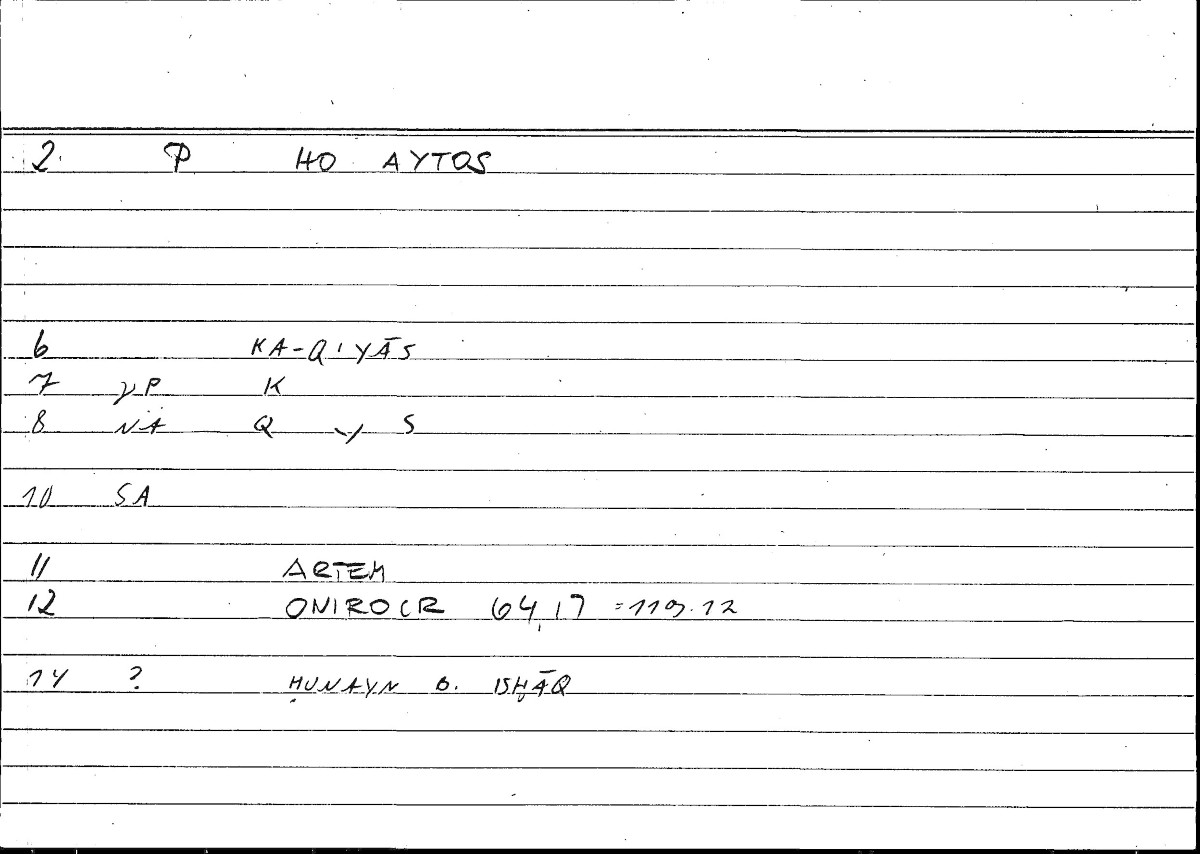 2. P HO AYTOS
6 KA-QIYĀS
7 γP K
8 NA Q Y S
10 SA
11 ARTEM
12 ONIROCR 64,17 =119.12
14 ? ḤUNAYN B. ISḤĀQ